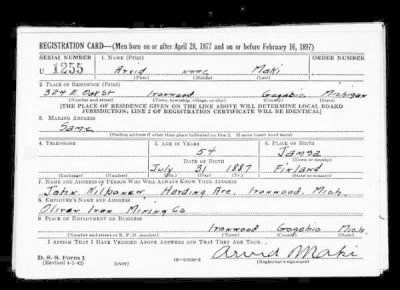 REGISTRATION CARD—(Men born on or after April 28, 1877 and on or before February 16, 1897)
SERIAL NUMBER 1. NAME (Print) ORDER NUMBER
U 1255 Arvid none Maki
(First) (Middle) (Last)
2. PLACE OF RESIDENCE (Print)
324 E. Ironwood Gogebic Michigan
(Number and street) (Town, township, village, or city) (County) (State)
[THE PLACE OF RESIDENCE GIVEN ON THE LINE ABOVE WILL DETERMINE LOCAL BOARD
JURISDICTION; LINE 2 OF REGISTRATION CERTIFICATE WILL BE IDENTICAL]
3. MAILING ADDRESS
Same
[Mailing address if other than place indicated on line 2. If same insert word same]
4. TELEPHONE 5. AGE IN YEARS 6. PLACE OF BIRTH
54 Jamsa
DATE OF BIRTH (Town or county)
July 31 1887 Finland
(Exchange) (Number) (Mo.) (Day) (Yr.) (State or country)
7. NAME AND ADDRESS OF PERSON WHO WILL ALWAYS KNOW YOUR ADDRESS
John Harding Ave. Ironwood, Mich.
8. EMPLOYER'S NAME AND ADDRESS
Oliver Iron Mining Co
9. PLACE OF EMPLOYMENT OR BUSINESS
Ironwood Gogebic Mich.
(Number and street or R. F. D. number) (Town) (County) (State)
I AFFIRM THAT I HAVE VERIFIED ABOVE ANSWERS AND THAT THEY ARE TRUE.
D. S. S. Form 1
(Revised 4-1-42) (over) Arvid Maki
(Registrant's signature)